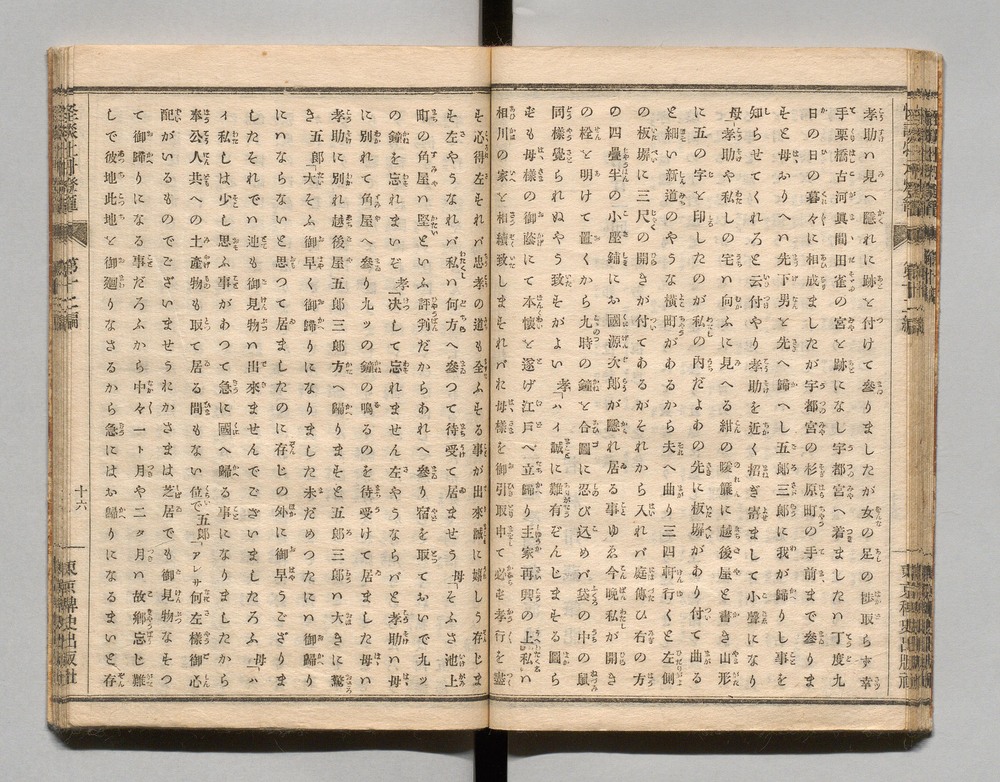 孝助ハ見へ隱れに跡を付けて參りましたが女の足の捗取らず幸
手栗橋古河眞間田雀の宮を跡になし宇都宮へ着ましたハ丁度九
日の日の暮々に相成ましたが宇都宮の杉原町の手前まで參りま
すと母おりへハ先下男を先へ歸へし五郎三郎に我が歸りし事を
知らせてくれろと云付やり孝助を近く招ぎ寄まして小聲になり
母孝助や私しの宅ハ向ふに見へる紺の暖簾に越後屋と書き山形
に五の字を印したのが私の內だよあの先に板塀があり付て曲る
と細い新道のやうな橫町があるから夫へ曲り三四軒行くと左側
の板塀に三尺の開きが付てあるがそれから入れバ庭傳ひ右の方
の四疊半の小座鋪にお國源次郎が隱れ居る事ゆゑ今晚私が開き
の栓を明けて置くから九時の鐘を合圖に忍び込めバ袋の中の鼠
同樣覺られぬやう致すがよい 孝「ハイ誠に難有ぞんじまする圖ら
ずも母樣の御蔭にて本懷を遂げ江戶へ立歸り主家再興の上私ハ
相川の家を相續致しますれバお母樣を御引取申て必ず孝行を盡
す心得左すれバ忠孝の道も全ふする事が出來誠に嬉しう存じま
す左やうなれバ私ハ何方へ參つて待受て居ませう 母「そふさ池上
町の角屋ハ堅いといふ評判だからあれへ參り宿を取ておいで九ッ
の鐘を忘れまいぞ 孝「决して忘れません左やうならバと孝助ハ母
に別れて角屋へ參り九ッの鐘の鳴るのを待受けて居ました母ハ
孝助に別れ越後屋五郎三郎方へ歸りますと五郎三郎ハ大きに驚
き 五郎「大そふ御早く御歸りになりました未だめつたにハ御歸り
にハならないと思つて居ましたのに存じの外に御早うござりま
したそれでハ迚も御見物ハ出來ませんでございましたろふ 母「ハ
イ私しは少し思ふ事があつて急に國へ歸る事になりましたから
奉公人共への土產物も取て居る間もない位で 五郎「アレサ何左樣御心
配がいるものでございませうおかさまは芝居でも御見物なすつ
て御歸りになる事だろふから中々一ト月や二タ月ハ故鄉忘じ難
しで彼地此地を御廻りなさるから急にはお歸りになるまいと存
第十二編
十六
東京稗史出版社